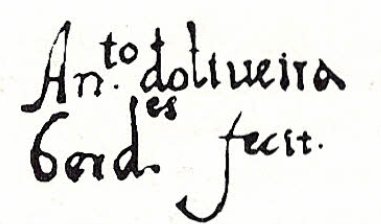 An.to doliueira
Berd.es fecit.